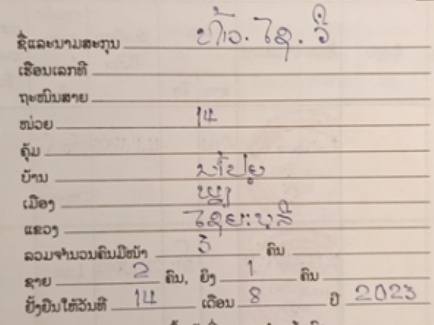 ຊື່ແລະນາມສະກຸນ ທ້າວ. ໄຊ. ວື
ເຮືອນເລກທີ
ຖະໜົນສາຍ
ໜ່ວຍ 14
ຄຸ້ມ
ບ້ານ
ເມືອງ
ແຂວງ ໄຊຍະບຸລີ
ລວມຈຳນວນຄົນມີໜ້າ 3 ຄົນ
ຊາຍ 2 ຄົນ, ຍິງ 1 ຄົນ
ຢັ້ງຢືນໃຫ້ວັນທີ 14 ເດືອນ 8 ປີ 2023